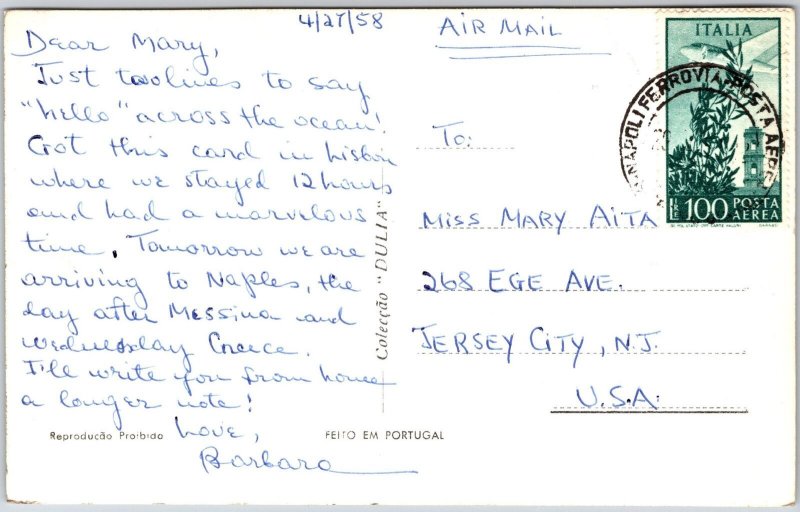 4/27/58
Dear Mary,
Just two lines to say
"hello" across the ocean!
Got this card in Lisbon
where we stayed 12 hours
and had a marvelous
time. Tomorrow we are
arriving to Naples, the
day after Messina and
wednesday Greece.
I'll write you from home
a longer note!
Love,
Barbara
Reprodução Proibida
FEITO EM PORTUGAL
Colecção "DULIA"
AIR MAIL
To:
MISS MARY AITA
268 EGE AVE.
JERSEY CITY, N.J.
U.S.A.
ITALIA
LIRE 100 POSTA AEREA
NAPOLI FERROVIA POSTA AEREA